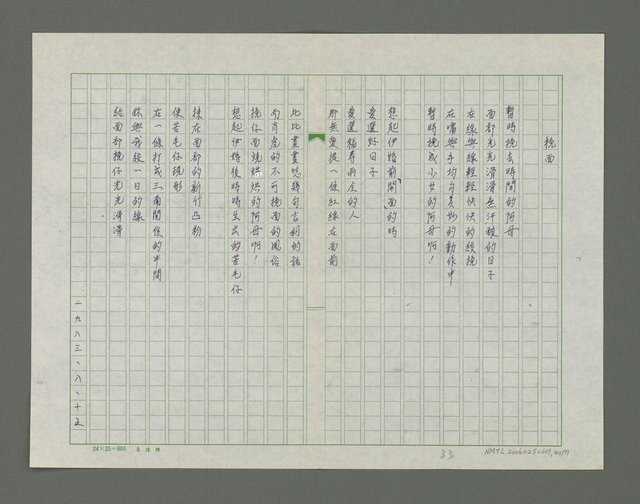 挽面
暫時挽去時間的阿母
面部光光滑滑無汗酸的日子
在線與線輕輕快快的絞挽
在嘴與手均勻美妙的動作中
暫時挽成少女的阿母啊！
想起伊婚前「開面」的時
愛選好日子
愛選福壽雨全的人
那無愛提一條紅線在面前
比比畫畫唸幾句吉利的話
而肖虎的不可挽面的風俗
挽仔面燒烘烘的阿母啊！
想起伊婚後時時生出的苦毛仔
抹在面部的新竹凸粉
使苦毛仔現形
在一條打成三角關係的中間
妳與我設一日的線
給面部挽仔光光滑滑
一九八三、八、十五
24×25=600
33
NMTL 20060250007